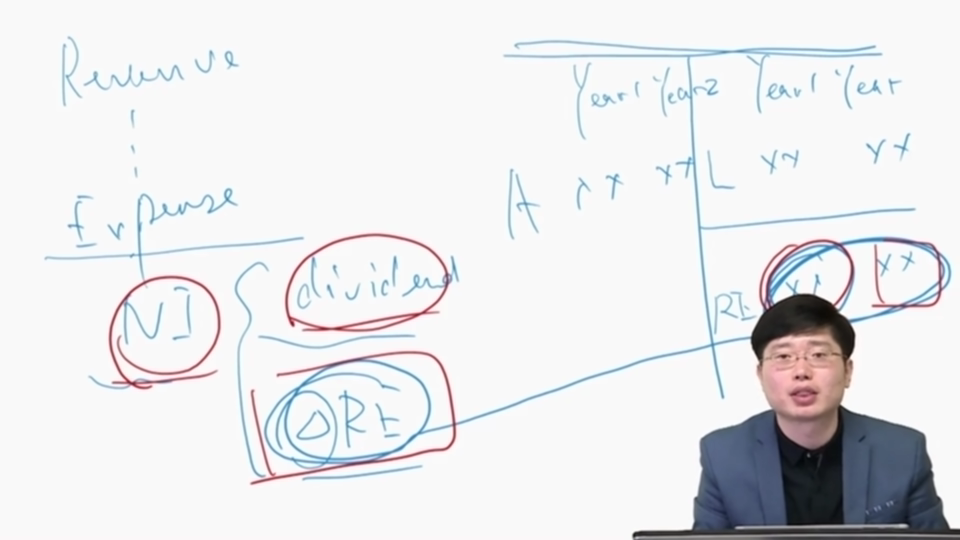 Revenue
Expense
NI
dividend
△RE
Year1 Year2 Year1 Year
A xx xx L xx xx
RE xx xx